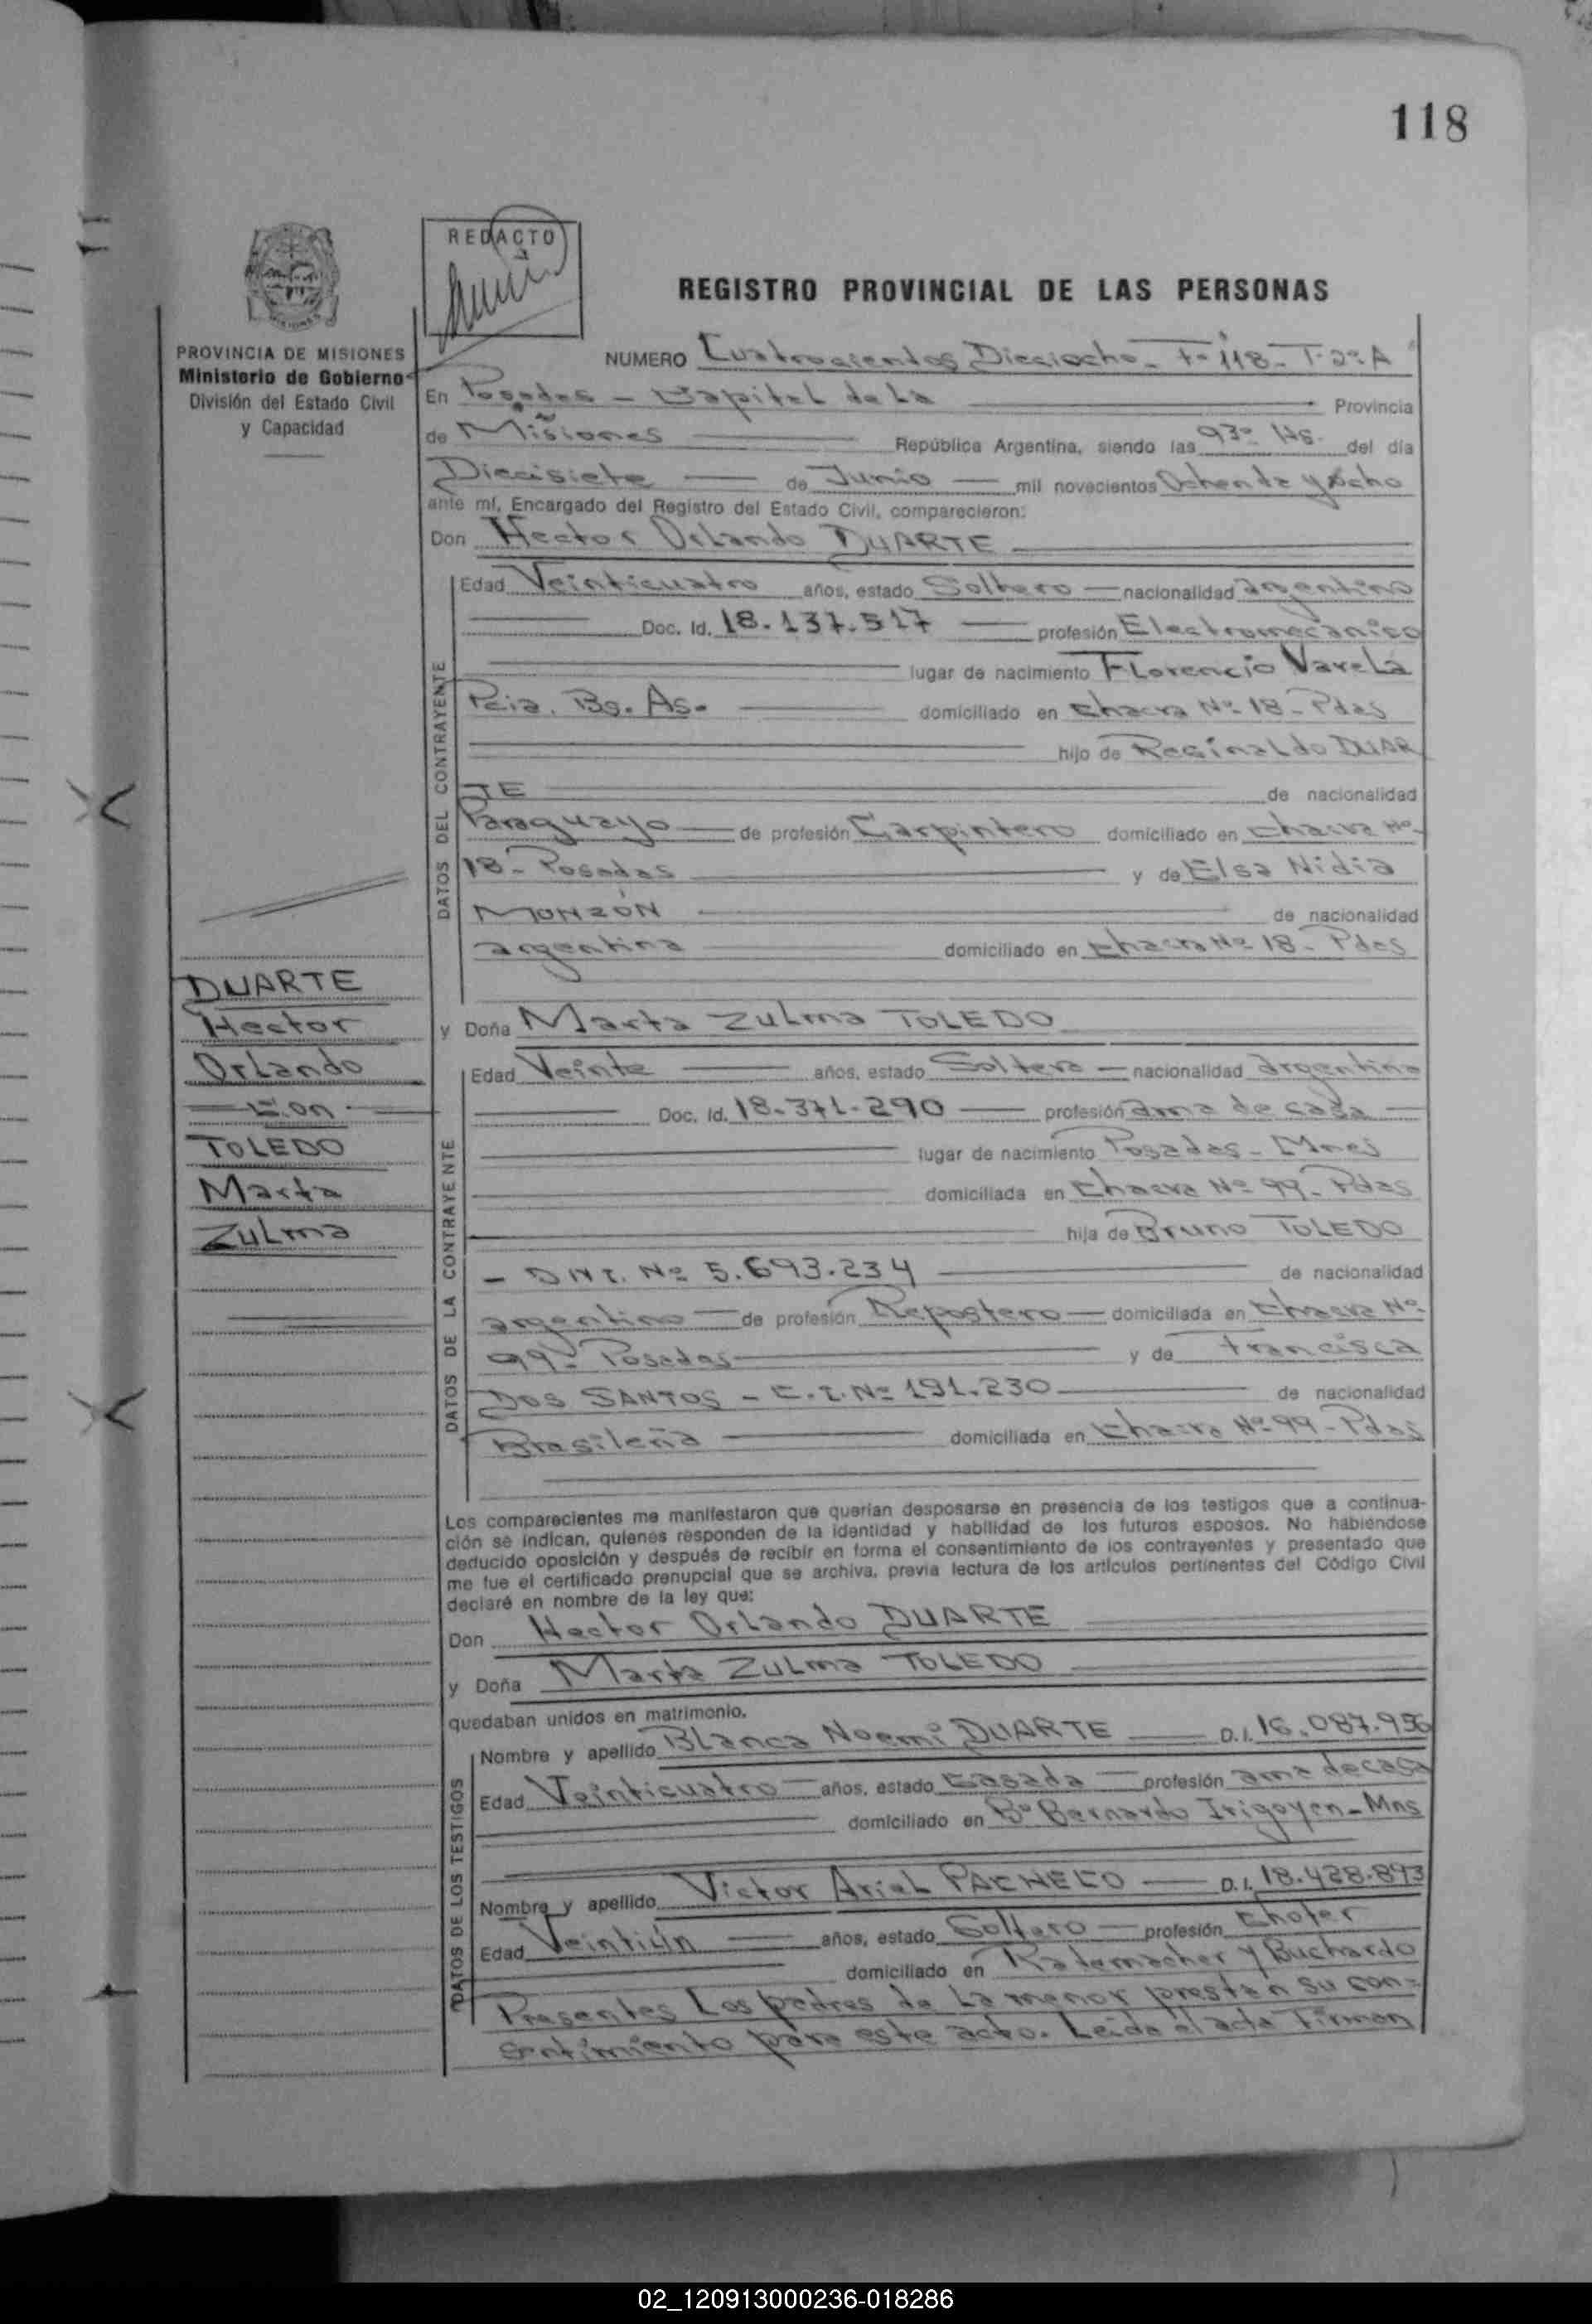 118
REDACTO
REGISTRO PROVINCIAL DE LAS PERSONAS
PROVINCIA DE MISIONES
Ministerio de Gobierno
División del Estado Civil
y Capacidad
NUMERO Cuatrocientos Dieciocho - F- 118 - T- 2º A
En Posadas - Capital de La Provincia
de Misiones República Argentina, siendo las 9³⁰ Hs. del día
Diecisiete de Junio mil novecientos Ochenta y ocho
ante mí, Encargado del Registro del Estado Civil, comparecieron:
Don Hector Orlando DUARTE
DATOS DEL CONTRAYENTE
Edad Veinticuatro años, estado Soltero nacionalidad argentino
Doc. Id. 18.137.517 profesión Electromecánico
lugar de nacimiento Florencio Varela
Pcia. Bs. As. domiciliado en Chacra Nº 18 - Pdas
hijo de Reginaldo DUAR
TE de nacionalidad
Paraguayo de profesión Carpintero domiciliado en Chacra Nº
18 - Posadas y de Elsa Nidia
MONZÓN de nacionalidad
argentina domiciliado en Chacra Nº 18 - Pdas
DUARTE
Hector
Orlando
Con
TOLEDO
Marta
Zulma
y Doña Marta Zulma TOLEDO
DATOS DE LA CONTRAYENTE
Edad Veinte años, estado Soltera nacionalidad argentina
Doc. Id. 18.371.290 profesión ama de casa
lugar de nacimiento Posadas - Mnes
domiciliada en Chacra Nº 99 - Pdas
hija de Bruno TOLEDO
- DNI. Nº 5.693.234 de nacionalidad
argentino de profesión Repostero domiciliada en Chacra Nº
99 - Posadas y de Francisca
DOS SANTOS - C.I. Nº 191.230 de nacionalidad
Brasileña domiciliada en Chacra Nº 99 - Pdas
Los comparecientes me manifestaron que querían desposarse en presencia de los testigos que a continua-
ción se indican, quienes responden de la identidad y habilidad de los futuros esposos. No habiéndose
deducido oposición y después de recibir en forma el consentimiento de los contrayentes y presentado que
me fue el certificado prenupcial que se archiva, previa lectura de los artículos pertinentes del Código Civil
declaré en nombre de la ley que:
Don Hector Orlando DUARTE
y Doña Marta Zulma TOLEDO
quedaban unidos en matrimonio.
DATOS DE LOS TESTIGOS
Nombre y apellido Blanca Noemí DUARTE D.I. 16.087.956
Edad Veinticuatro años, estado Casada profesión ama de casa
domiciliado en Bº Bernardo Irigoyen - Mns
Nombre y apellido Victor Ariel PACHECO D.I. 18.428.893
Edad Veintiún años, estado Soltero profesión Chofer
domiciliado en Rademacher y Buchardo
Presentes Los padres de La menor prestan su con-
sentimiento para este acto. Leida el acta Firman
02_120913000236-018286